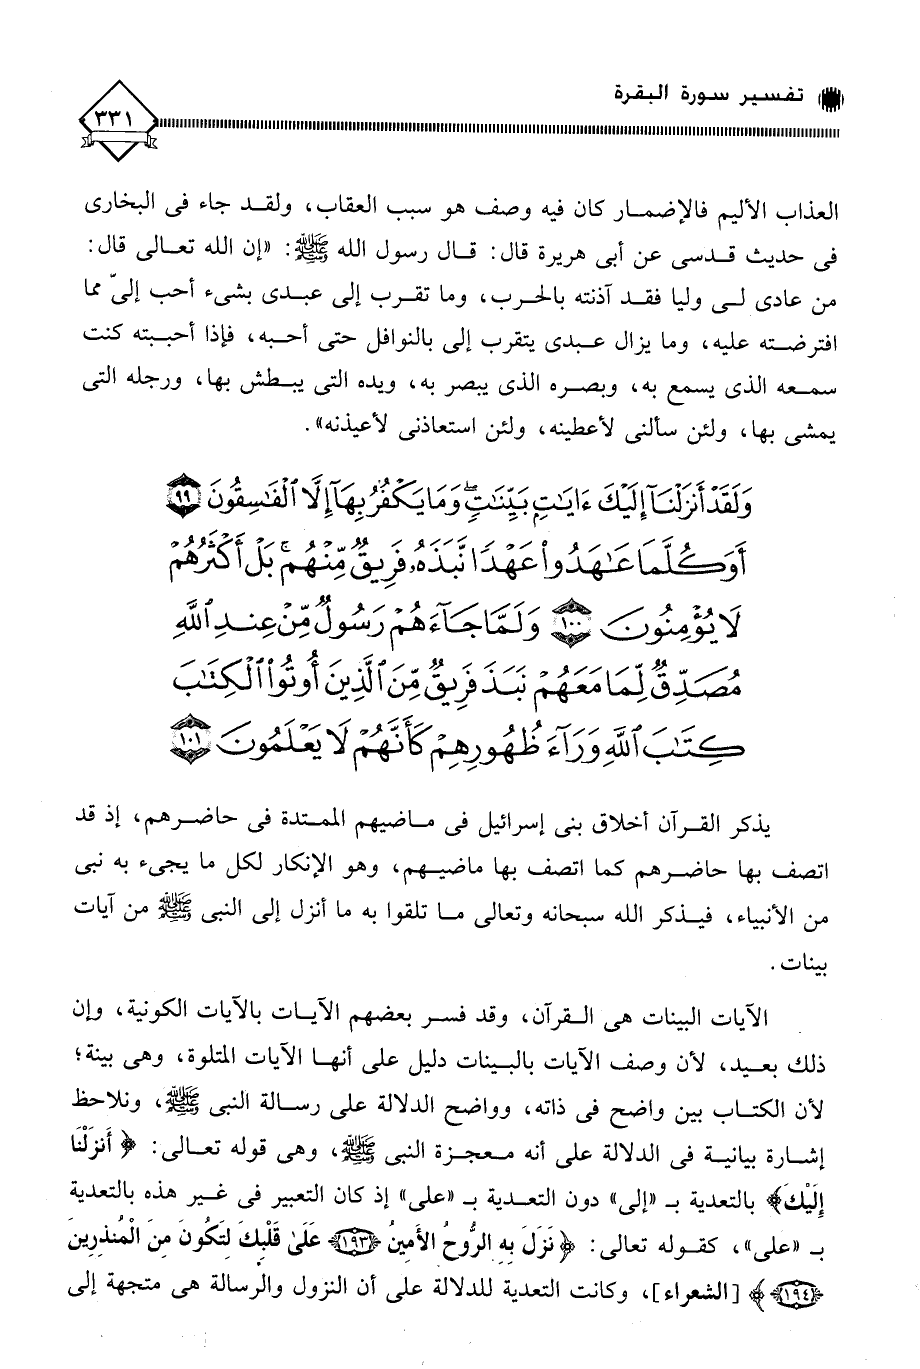 تفسير سورة البقرة
٣٣١
العذاب الأليم فالإضمار كان فيه وصف هو سبب العقاب، ولقد جاء فى البخارى
فى حديث قدسى عن أبى هريرة قال: قال رسول الله ﷺ: «إن الله تعالى قال:
من عادى لى وليا فقد آذنته بالحرب، وما تقرب إلى عبدى بشىء أحب إلىّ مما
افترضته عليه، وما يزال عبدى يتقرب إلى بالنوافل حتى أحبه، فإذا أحببته كنت
سمعه الذى يسمع به، وبصره الذى يبصر به، ويده التى يبطش بها، ورجله التى
يمشى بها، ولئن سألنى لأعطينه، ولئن استعاذنى لأعيذنه».
وَلَقَدْ أَنزَلْنَآ إِلَيْكَ ءَايَٰتٍۭ بَيِّنَٰتٍۖ وَمَا يَكْفُرُ بِهَآ إِلَّا ٱلْفَٰسِقُونَ ٩٩
أَوَكُلَّمَا عَٰهَدُوا۟ عَهْدًا نَّبَذَهُۥ فَرِيقٌ مِّنْهُمۚ بَلْ أَكْثَرُهُمْ
لَا يُؤْمِنُونَ ١٠٠ وَلَمَّا جَآءَهُمْ رَسُولٌ مِّنْ عِندِ ٱللَّهِ
مُصَدِّقٌ لِّمَا مَعَهُمْ نَبَذَ فَرِيقٌ مِّنَ ٱلَّذِينَ أُوتُوا۟ ٱلْكِتَٰبَ
كِتَٰبَ ٱللَّهِ وَرَآءَ ظُهُورِهِمْ كَأَنَّهُمْ لَا يَعْلَمُونَ ١٠١
يذكر القرآن أخلاق بنى إسرائيل فى ماضيهم الممتدة فى حاضرهم، إذ قد
اتصف بها حاضرهم كما اتصف بها ماضيهم، وهو الإنكار لكل ما يجىء به نبى
من الأنبياء، فيذكر الله سبحانه وتعالى ما تلقوا به ما أنزل إلى النبى ﷺ من آيات
بينات.
الآيات البينات هى القرآن، وقد فسر بعضهم الآيات بالآيات الكونية، وإن
ذلك بعيد، لأن وصف الآيات بالبينات دليل على أنها الآيات المتلوة، وهى بينة؛
لأن الكتاب بين واضح فى ذاته، وواضح الدلالة على رسالة النبى ﷺ، ونلاحظ
إشارة بيانية فى الدلالة على أنه معجزة النبى ﷺ، وهى قوله تعالى: ﴿ أَنزَلْنَا
إِلَيْكَ﴾ بالتعدية بـ «إلى» دون التعدية بـ «على» إذ كان التعبير فى غير هذه بالتعدية
بـ «على»، كقوله تعالى: ﴿ نَزَلَ بِهِ الرُّوحُ الأَمِينُ ﴿١٩٣﴾ عَلَىٰ قَلْبِكَ لِتَكُونَ مِنَ الْمُنذِرِينَ
﴿١٩٤﴾ ﴾ [الشعراء]، وكانت التعدية للدلالة على أن النزول والرسالة هى متجهة إلى